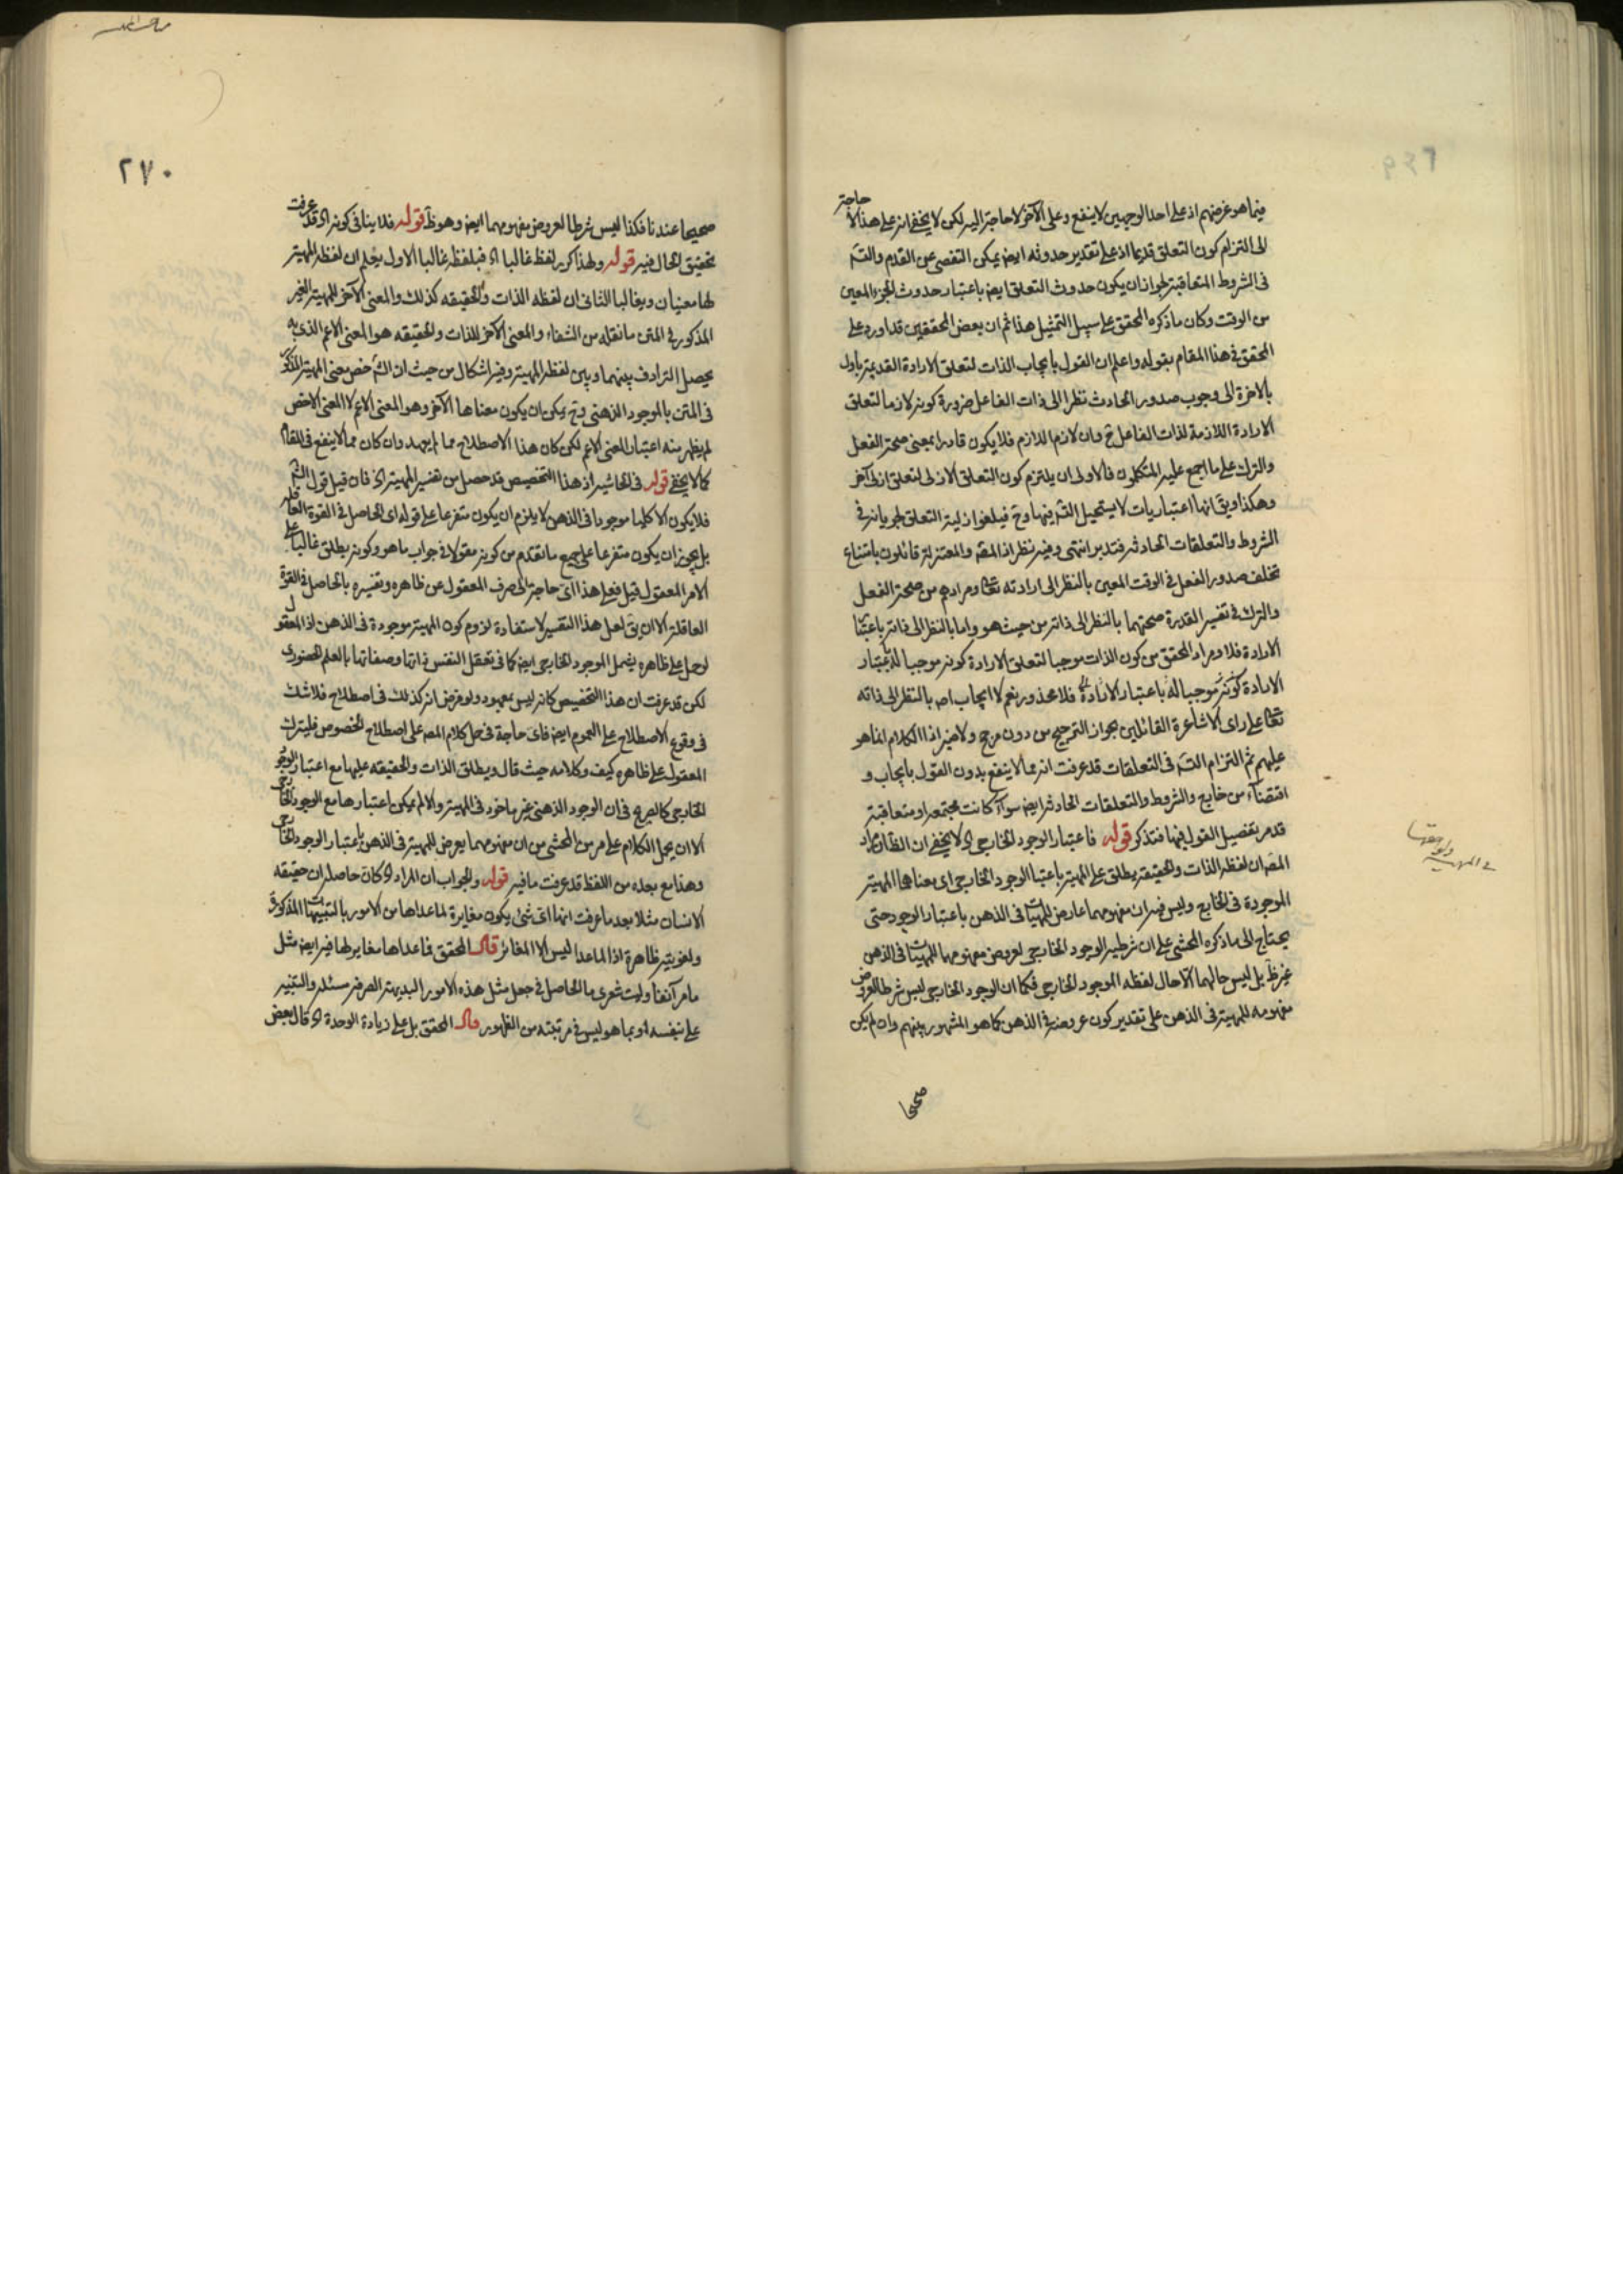 فيما هو غرضهم اذ على احد الوجهين لا ينفع وعلى الآخر لا حاجة اليه لكن لا يخفى انه على هذا لا حاجة
الى التزام كون التعلق قديما اذ على تقدير حدوثه ايضا يمكن التفصى عن القدم والتسـ
فى الشروط المتعاقبة لجواز ان يكون حدوث التعلق ايضا باعتبار حدوث الجزء المعين
من الوقت وكان ما ذكره المحقق على سبيل التمثيل هذا ثم ان بعض المحققين قد اورد على
المحقق فى هذا المقام بقوله واعلم ان القول بايجاب الذات لتعلق الارادة القديمة يأول
بالاخرة الى وجوب صدور الحادث نظرا الى ذات الفاعل ضرورة كونه لازما لتعلق
الارادة اللازمة لذات الفاعل ح وان لازم اللازم لازم فلا يكون قادرا بمعنى صحة الفعل
والترك على ما اجمع عليه المتكلمون فالاولى ان يلتزم كون التعلق الازلى لتعلق ازلى آخر
وهكذا ويق انها اعتباريات لا يستحيل التسـ فيها وح فيلغوا ازلية التعلق لجريانه فى
الشروط والتعلقات الحادثة فتدبر انتهى وفيه نظر اذ المصـ والمعتزلة قائلون بامتناع
تخلف صدور الفعل فى الوقت المعين بالنظر الى ارادته تعـ ومرادهم من صحة الفعل
والترك فى تفسير القدرة صحتهما بالنظر الى ذاته من حيث هو واما بالنظر الى ذاته باعتبار
الارادة فلا ومراد المحقق من كون الذات موجبا لتعلق الارادة كونه موجبا له باعتبار
الارادة كونه موجبا له باعتبار الارادة فلا محذور نعم لا ايجاب اصـ بالنظر الى ذاته
تعـ على راى الاشاعرة القائلين بجواز الترجيح من دون مرجح ولا ضير اذ الكلام انما هو
عليهم ثم التزام التسـ فى التعلقات قد عرفت انه مما لا ينفع بدون القول بايجاب و
اقتضاء من خارج والشروط والتعلقات الحادثة ايضا سواء كانت مجتمعة او متعاقبة
قد مر تفصيل القول فيها فتذكر قوله فاعتبار الوجود الخارجى اه لا يخفى ان الظ ان مراد
المصـ ان لفظة الذات والحقيقة يطلق على المهية باعتبار الوجود الخارجى اى معناهما المهية
الموجودة فى الخارج وليس فيه ان مفهومهما عارض للمهيات فى الذهن باعتبار الوجود حتى
يحتاج الى ما ذكره المحشى على ان شرطية الوجود الخارجى لعروض مفهومهما للمهيات فى الذهن
غير ظ بل ليس حالهما الا حال لفظه الموجود الخارجى فكما ان الوجود الخارجى ليس شرطا لعروض
مفهومه للمهية فى الذهن على تقدير كون عروضه فى الذهن كما هو المشهور بينهم وان لم يكن
صحيحا
٢٧٠
صحيحا عندنا فكذا ليس شرطا لعروض مفهومهما ايضا وهو ظ قوله فلا ينافى كونه اه قد عرفت
تحقيق الحال فيه قوله ولهذا كرر لفظ غالبا اه فبلفظة غالبا الاول يعلم ان لفظة المهية
لها معنيان وبغالبا الثانى ان لفظه الذات والحقيقه كذلك والمعنى الآخر للمهية الغير
المذكور فى المتن ما نقله من الشفاء والمعنى الآخر للذات والحقيقه هو المعنى الاعم الذى به
يحصل الترادف بينهما وبين لفظة المهية وفيه اشكال من حيث ان الشـ خص معنى المهية المذكور
فى المتن بالموجود الذهنى وح يمكن ان يكون معناها الآخر وهو المعنى الاعم لا المعنى الاخص
لم يظهر منه اعتبار المعنى الاعم لكن كان هذا الاصطلاح مما لم يعهد وان كان مما لا ينفع فى المقام
كما لا يخفى قوله فى الحاشية اذ هذا التخصيص قد حصل من تفسير المهية اه فان قيل قول الشـ
فلا يكون الا كليا موجودا فى الذهن لا يلزم ان يكون متفرعا على قوله اى الحاصل فى القوة العاقلة
بل يجوز ان يكون متفرعا على جميع ما تقدم من كونه مقولا فى جواب ما هو وكونه يطلق غالبا على
الامر المعقول قيل فعلى هذا اى حاجة الى صرف المعقول عن ظاهره وتفسيره بالحاصل فى القوة
العاقلة الا ان يق لعل هذا التفسير لاستفادة لزوم كون المهية موجودة فى الذهن اذ المعقول
لو حمل على ظاهره يشمل الموجود الخارجى ايضا كما فى تعقل النفس ذاتها وصفاتها بالعلم الحضورى
لكن قد عرفت ان هذا التخصيص كانه ليس بمعهود ولو فرض انه كذلك فى اصطلاح فلا شك
فى وقوع الاصطلاح على العموم ايضا فاى حاجة فى حمل كلام المصـ على اصطلاح الخصوص فليترك
المعقول على ظاهره كيف وكلامه حيث قال ويطلق الذات والحقيقه عليها مع اعتبار الوجود
الخارجى كالصريح فى ان الوجود الذهنى غير ماخوذ فى المهية والا لم يمكن اعتبارها مع الوجود الخارجى
الا ان يحمل الكلام على ما مر من المحشى من ان مفهومهما يعرض للمهية فى الذهن باعتبار الوجود الخارجى
وهذا مع بعده من اللفظ قد عرفت ما فيه قوله والجواب ان المراد اه كان حاصله ان حقيقه
الانسان مثلا بعد ما عرفت انها اى شئ يكون مغايرة لما عداها من الامور بالتنبيهات المذكورة
ولغويته ظاهرة اذ الماعدا ليس الا المغائر قال المحقق فما عداها مغاير لها فيه ايضا مثل
ما مر آنفا وليت شعرى ما الحاصل فى جعل مثل هذه الامور البديهة الصرفة مسئلة والتنبيه
على نفسه او بما هو ليس فى مرتبته من الظهور قال المحقق بل على زيادة الوحدة اه قال بعض